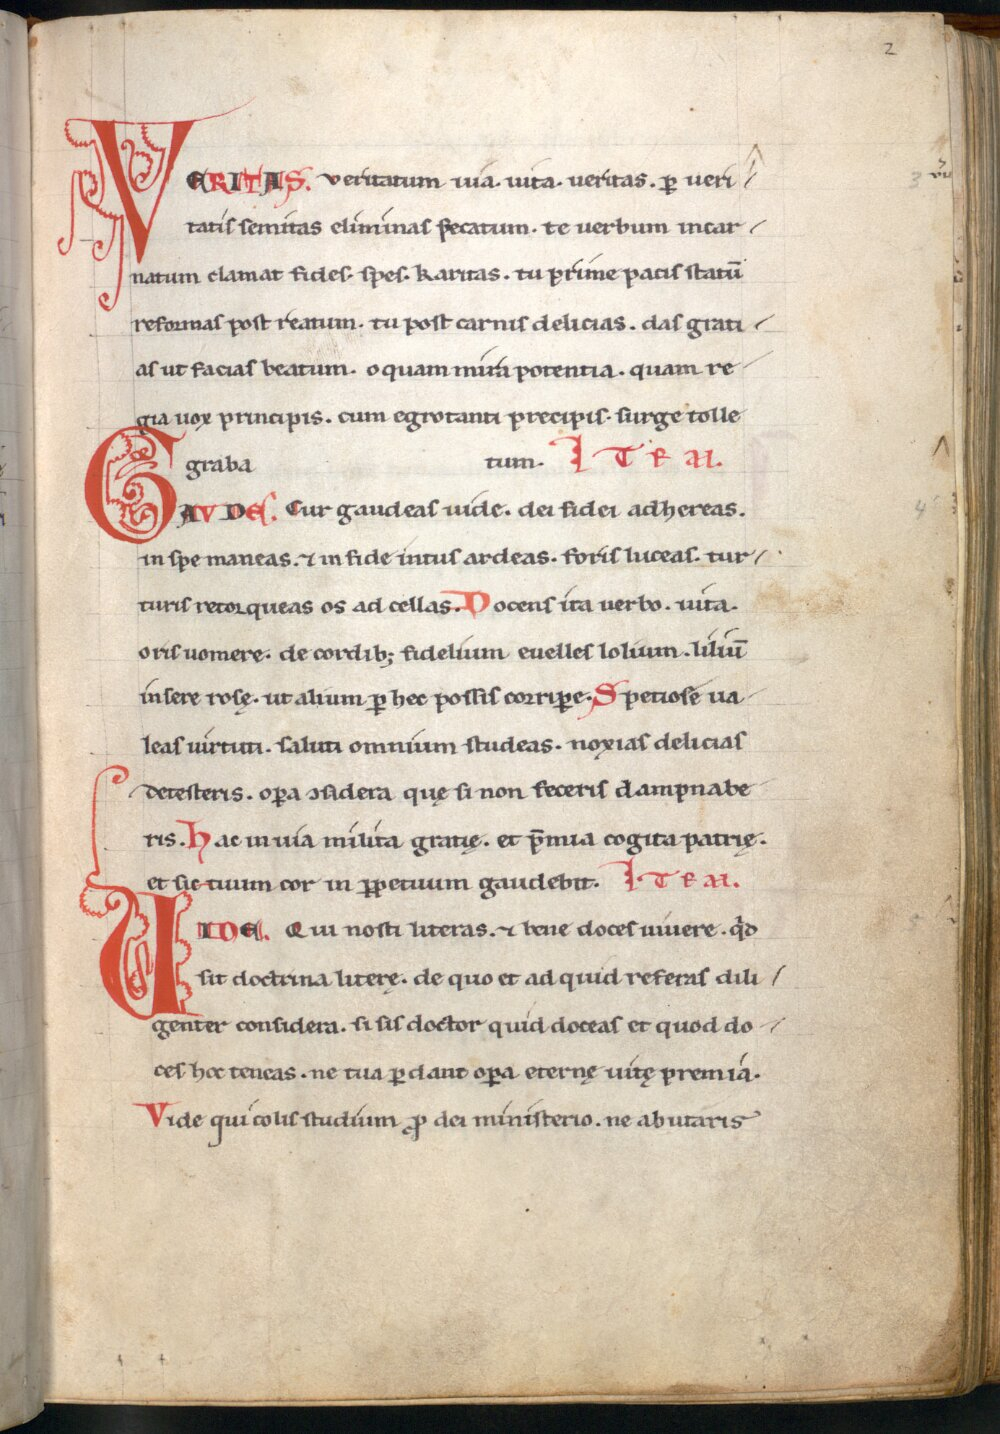 2
VERITAS. veritatum uia. uita. ueritas. ꝑ ueri
tatis semitas eliminas peccatum. te uerbum incar
natum clamat fides. spes. karitas. tu prime pacis statū
reformas post reatum. tu post carnis delicias. das grati
as ut facias beatum. o quam mira potentia. quam re
gia uox principis. cum egrotanti precipis. surge tolle
graba tum. ITEM.
GAVDES. Cur gaudeas uide. dei fidei adhereas.
in spe maneas. ⁊ in fide intus ardeas. foris luceas. tur
turis retorqueas os ad cellas. Docens ita uerbo. uita.
oris uomere. de cordib; fidelium euelles lolium. liliū
insere rosę. ut alium ꝑ hec possis corriꝑe. Speciose ua
leas uirtuti. saluti omnium studeas. noxias delicias
detesteris. oꝑa ↄsidera quę si non feceris dampnabe
ris. Hac in uia milita gratię. et p̄mia cogita patrię.
et sic tuum cor in ꝑpetuum gaudebit. ITEM.
VIDE. Qui nosti literas. ⁊ bene doces uiuere. qd̓
sit doctrina literę. de quo et ad quid referas dili
genter considera. si sis doctor quid doceas et quod do
ces hoc teneas. ne tua ꝑdant oꝑa eternę uitę premia.
Vide qui colis studium ꝓ dei ministerio. ne abutaris
3
4
5